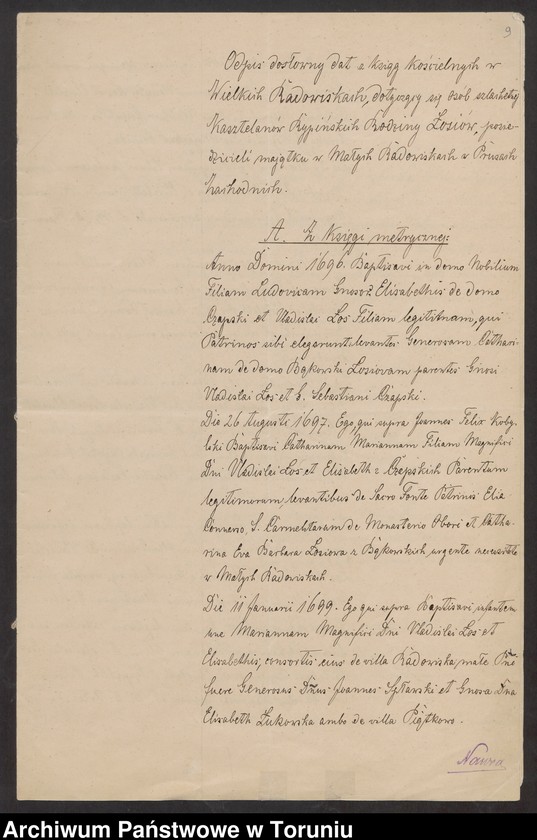 9
Odpis dosłowny dat z ksiąg kościelnych w
Wielkich Radowiskach, dotyczący się osób szlachetnej
Kasztelanów Rypińskich Rodziny Łosiów, posia-
dzicieli majątku w Małych Radowiskach w Prusach
Zachodnich.
A. Z Księgi metrycznej:
Anno Domini 1696. Baptisavi in domo Nobilium
Filiam Ludovicam Gnosor Elisabethis de domo
Czapski et Vladislai Los Filiam legitimam, qui
Patrinos sibi elegerunt levantes Generosam Cathari-
nam de domo Bąkowski Łosiovam parentes Gnosi
Vladislai Los et S. Sebastiani Czapski.
Die 26 Augusti 1697. Ego, qui supra Joannes Felix Koby-
lski Baptisavi Catharinam Mariannam Filiam Magnifici
Dni Vladislai Los et Elisabeth z Czapskich Parentum
legitimorum, levantibus de Sacro Fonte Patrinis Elia
S. Carmelitarum de Monasterio Obori et Catha-
rina Eva Barbara Łosiowa z Bąkowskich, urgente necessitate
w Małych Radowiskach.
Die 11 Januarii 1699. Ego qui supra Baptisavi infantem
nne Mariannam Magnifici Dni Vladislai Los et
Elisabethis, consortis eius de villa Radowiska małe
fuere Generosus Dnus Joannes et Gnosa Dna
Elisabeth Żukowska ambo de villa Piątkowo.
Nawra
Archiwum Państwowe w Toruniu